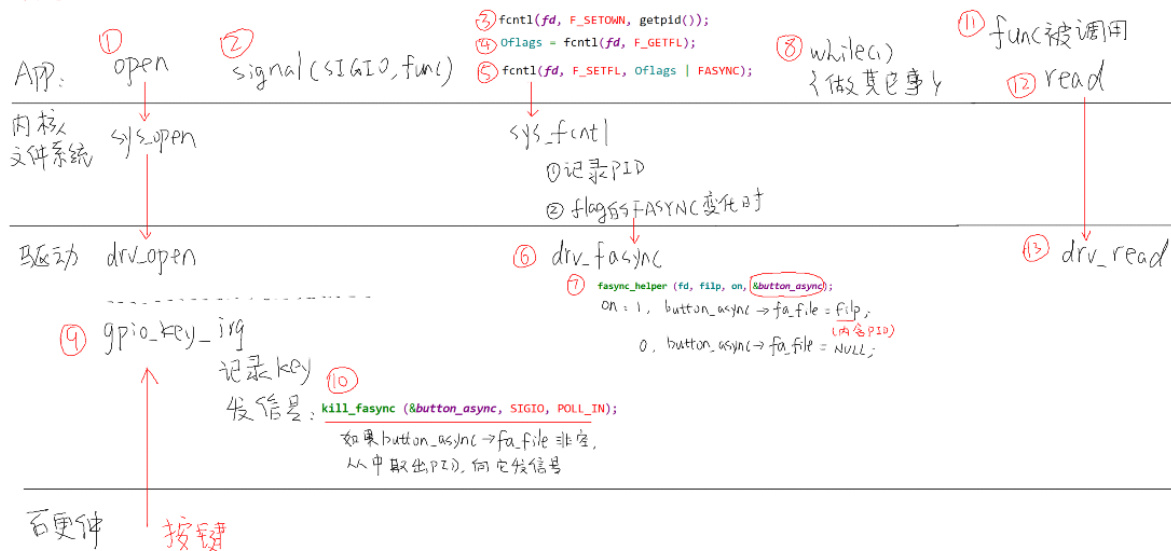 App:
① open
② signal(SIGIO, func)
③ fcntl(fd, F_SETOWN, getpid());
④ Oflags = fcntl(fd, F_GETFL);
⑤ fcntl(fd, F_SETFL, Oflags | FASYNC);
⑧ while(1)
{做其它事}
⑪ func被调用
⑫ read
内核
文件系统
sys_open
sys_fcntl
①记录PID
② flag的FASYNC变化时
驱动
drv_open
⑥ drv_fasync
⑦ fasync_helper (fd, filp, on, &button_async);
on: 1, button_async→fa_file = filp;
(内含PID)
0, button_async→fa_file = NULL;
⑬ drv_read
⑨ gpio_key_irq
记录key
⑩
发信号: kill_fasync (&button_async, SIGIO, POLL_IN);
如果button_async→fa_file 非空,
从中取出PID, 向它发信号
硬件
按键